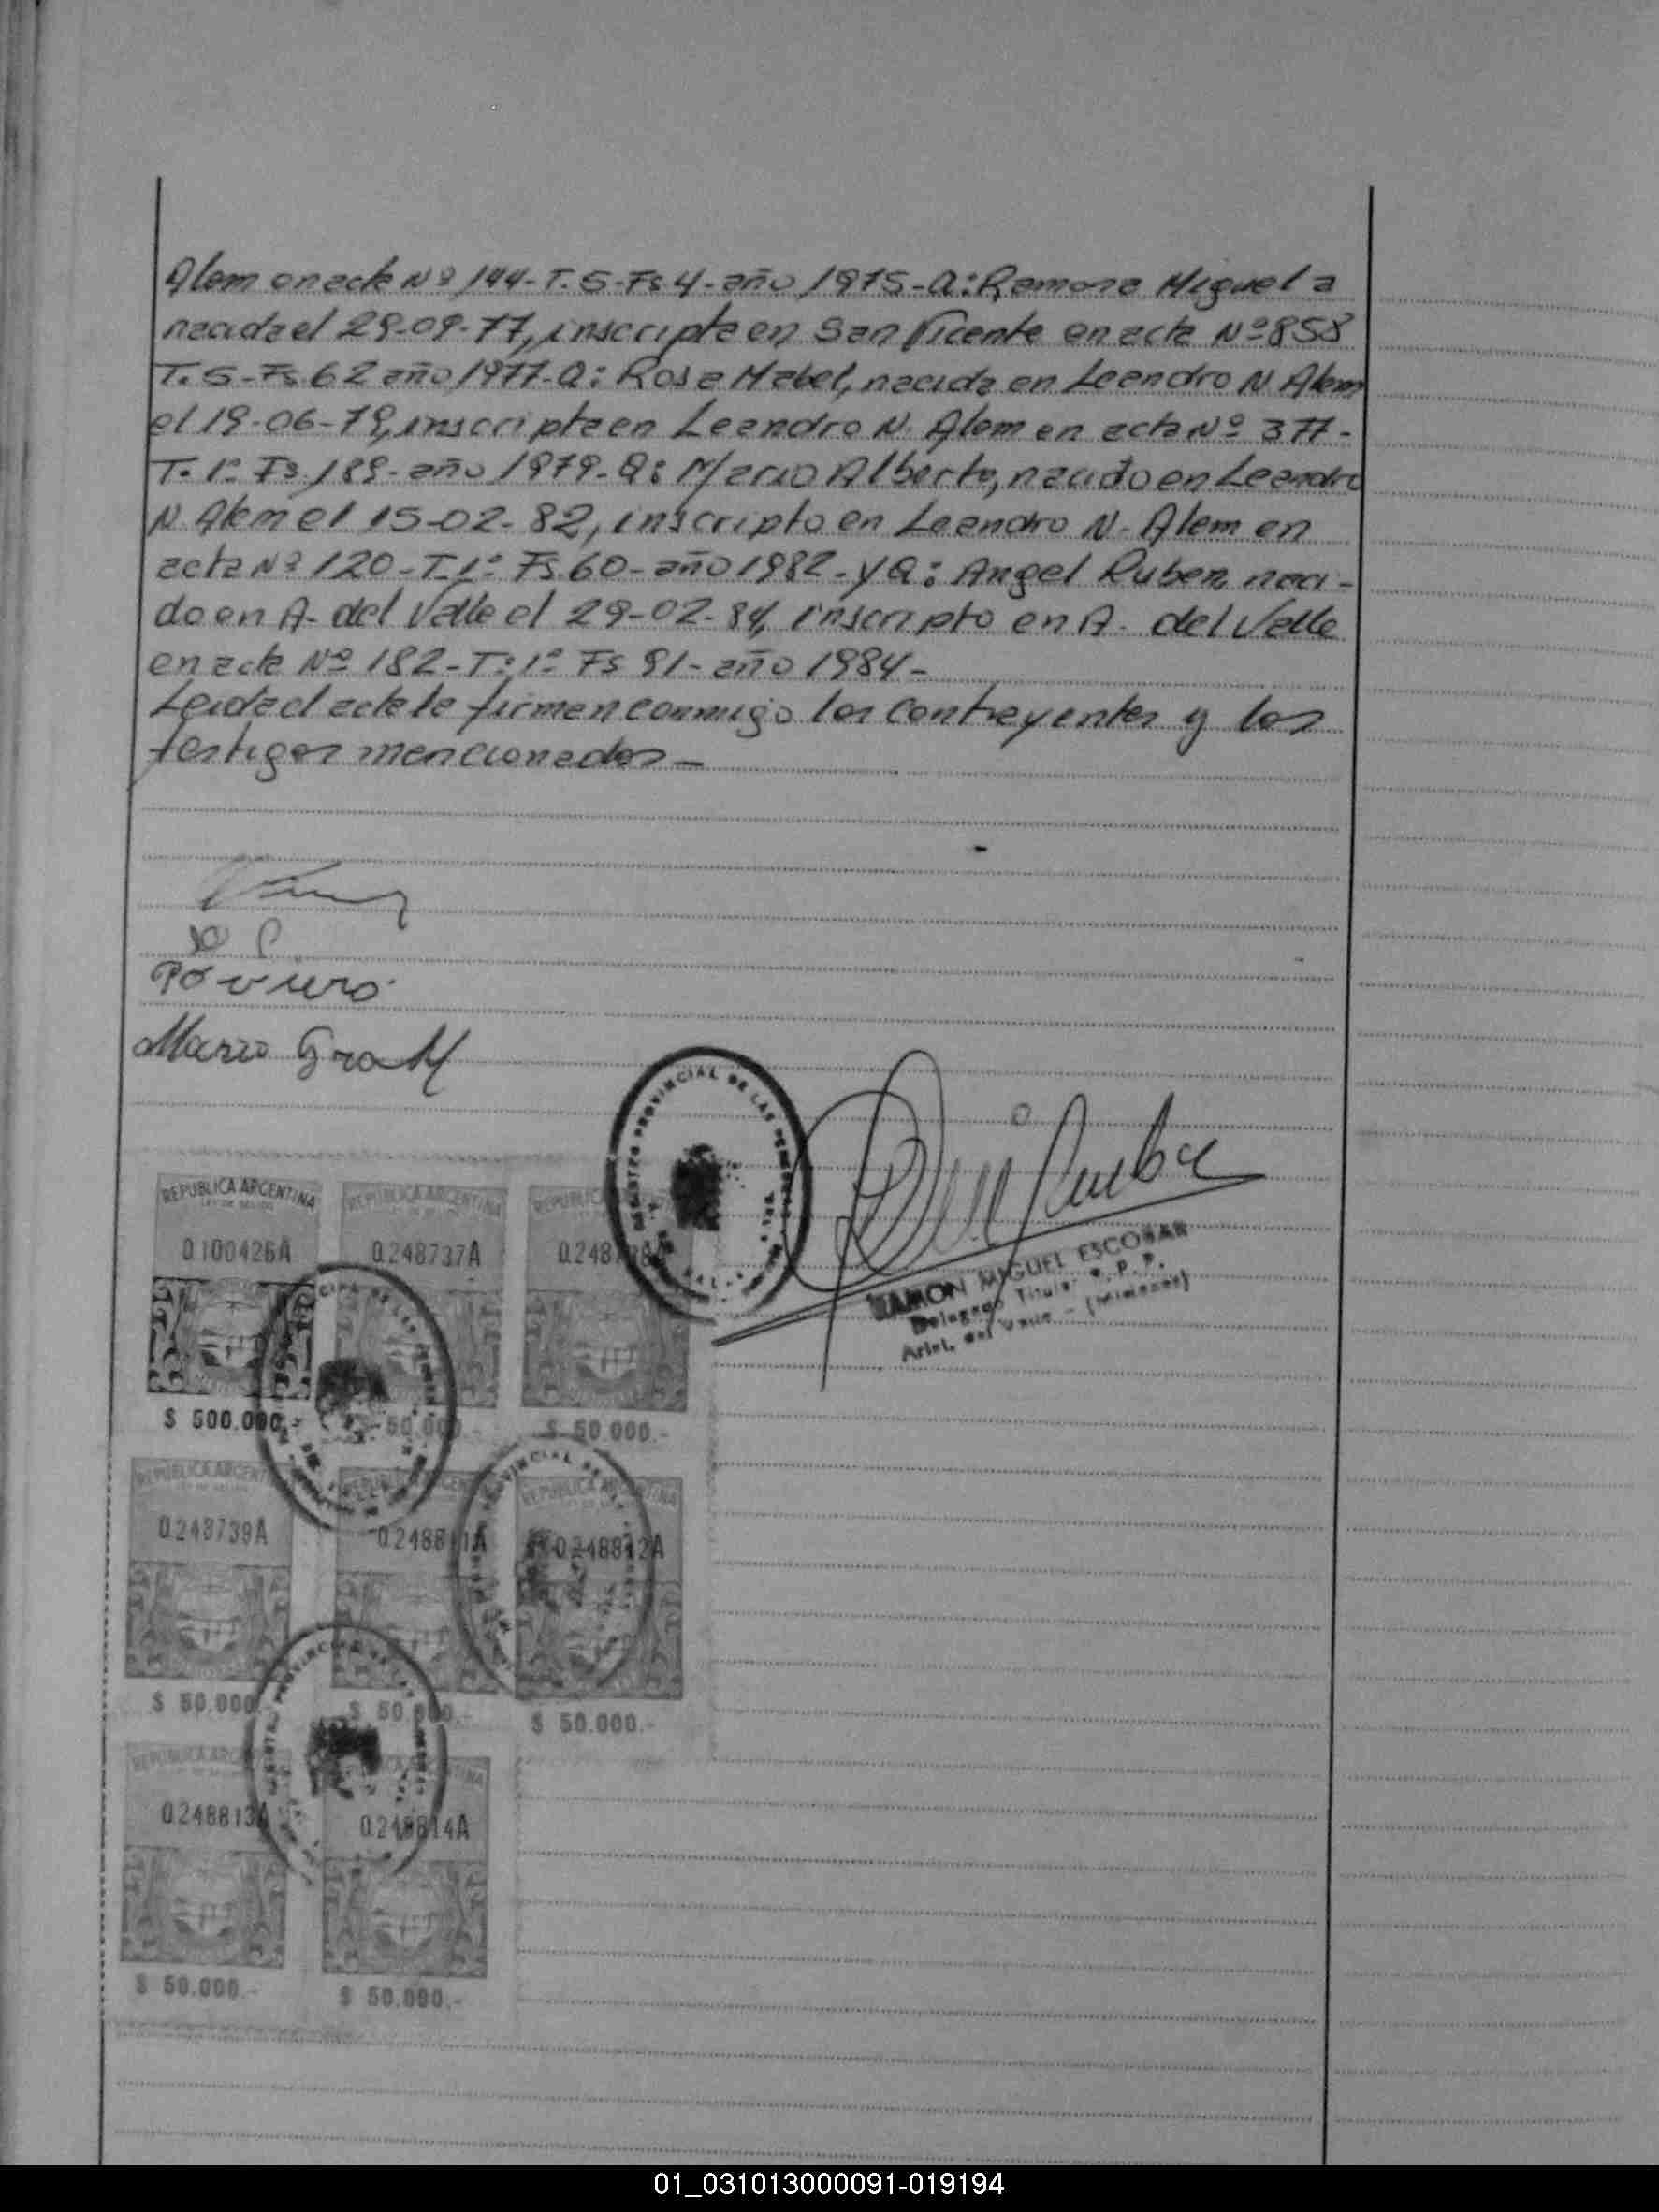 Alem en acta Nº 144-T. 5-Fs 4-año 1975-A: Ramona Miguela
nacida el 29-09-77, inscripta en San Vicente en acta Nº 858
T. 5-Fs 62 año 1977-A: Rosa Mabel, nacida en Leandro N. Alem
el 19-06-79, inscripta en Leandro N. Alem en acta Nº 377-
T. 1º Fs 189-año 1979-A: Mario Alberto, nacido en Leandro
N. Alem el 15-02-82, inscripto en Leandro N. Alem en
acta Nº 120-T. 1º Fs 60-año 1982-y A: Angel Ruben, naci-
do en A. del Valle el 29-02-84, inscripto en A. del Valle
en acta Nº 182-T: 1º Fs 91-año 1984-
Leida el acta la firman conmigo los contrayentes y los
testigos mencionados-
Mario
REGISTRO PROVINCIAL DE LAS
RAMON MIGUEL ESCOBAR
Delegado Titular R. P. P.
Arist. del Valle - (Misiones)
REPUBLICA ARGENTINA REPUBLICA ARGENTINA REPUBLICA
0.100426A 0.248737A 0.248
$ 500.000.- $ 50.000.- $ 50.000.-
REPUBLICA ARGENTINA REPUBLICA ARGENTINA REPUBLICA ARGENTINA
0.248739A 0.248811A 0.248812A
$ 50.000 $ 50.000.- $ 50.000.-
REPUBLICA ARGENTINA
0.248813A 0.248814A
$ 50.000.- $ 50.000.-
01_031013000091-019194